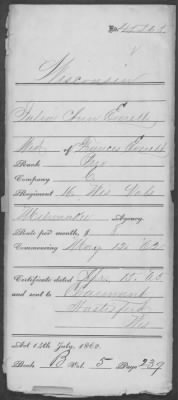 No.
Wisconsin
Julia Ann Everett
Wid. of Francis Everett
Rank Priv
Company C
Regiment 16 Wis Vols
Milwaukee Agency.
Rate per month, $ 8
Commencing May 12 '62
Certificate dated Apr. 15. '65
and sent to Claimant
Wis
Act 14th July, 1862.
Book B Vol. 5 Page 239